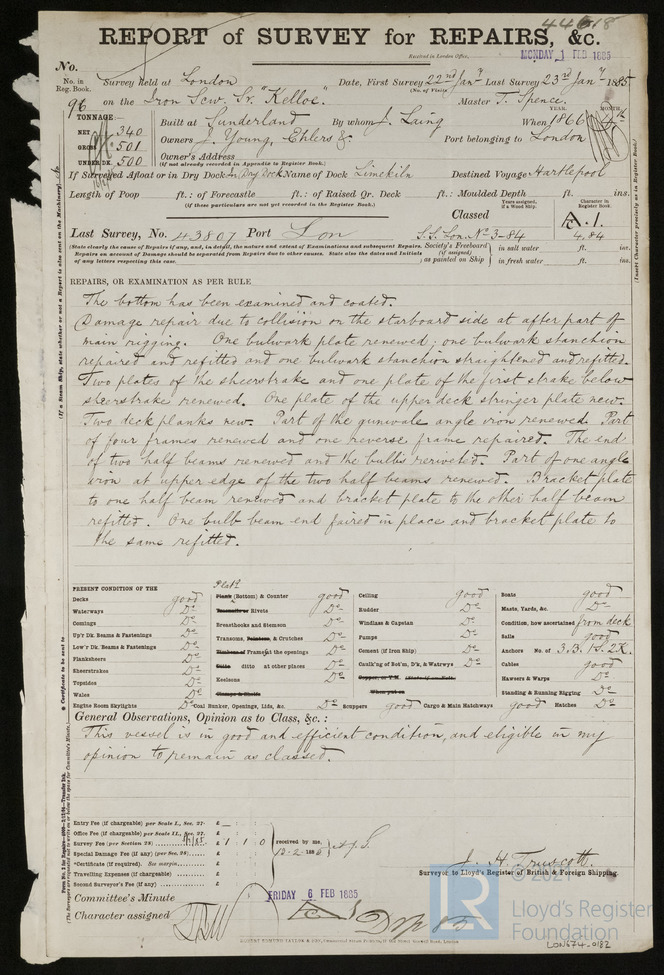 44618
REPORT of SURVEY for REPAIRS, &c.
Received in London Office,
MONDAY 1 FEB 1885
No.
No. in Reg. Book.
96
Survey held at London
Date, First Survey 22nd Jany Last Survey 23rd Jany 1885
(No. of Visits
on the Iron Scw. Sr. "Kelloe."
Master T. Spence.
TONNAGE:
NET 340
GROSS 501
UNDER DK. 500
Built at Sunderland
By whom J. Laing
When 1866
YEAR.
MONTH.
4th
Owners J. Young, Ehlers &
Port belonging to London
Owner's Address
(If not already recorded in Appendix to Register Book.)
If Surveyed Afloat or in Dry Dock In Dry Dock Name of Dock Limekiln
Destined Voyage Hartlepool
Length of Poop ft.: of Forecastle ft.: of Raised Qr. Deck ft.: Moulded Depth ft. ins.
(If these particulars are not yet recorded in the Register Book.)
Classed
Years assigned, if a Wood Ship.
Character in Register Book.
A.1.
4,84
Last Survey, No. 43807 Port Lon
S.S. Lon. No. 3-84
(State clearly the cause of Repairs if any, and, in detail, the nature and extent of Examinations and subsequent Repairs. Repairs on account of Damage should be separated from Repairs due to other causes. State also the dates and Initials of any letters respecting this case.
Society's Freeboard (if assigned) as painted on Ship
in salt water ft. ins.
in fresh water ft. ins.
REPAIRS, OR EXAMINATION AS PER RULE
The bottom has been examined and coated.
Damage repair due to collision on the starboard side at after part of
main rigging. One bulwark plate renewed; one bulwark stanchion
repaired and refitted and one bulwark stanchion straightened and refitted.
Two plates of the sheerstrake and one plate of the first strake below
sheerstrake renewed. One plate of the upper deck stringer plate new.
Two deck planks new. Part of the gunwale angle iron renewed. Part
of four frames renewed and one reverse frame repaired. The end
of two half beams renewed and the bulbs reriveted. Part of one angle
iron at upper edge of the two half beams renewed. Bracket plate
to one half beam renewed and bracket plate to the other half beam
refitted. One bulb beam end faired in place and bracket plate to
the same refitted.
PRESENT CONDITION OF THE
Decks good
Waterways Do
Comings Do
Up'r Dk. Beams & Fastenings Do
Low'r Dk. Beams & Fastenings Do
Planksheers Do
Sheerstrakes Do
Topsides Do
Wales Do
Engine Room Skylights Do
Plate
Plank (Bottom) & Counter good
Treenails or Rivets Do
Breasthooks and Stemson Do
Transoms, Pointers, & Crutches Do
Timbers of Frames at the openings Do
ditto at other places Do
Keelsons Do
Clamps & Shelfs
Coal Bunker, Openings, Lids, &c. Do
Ceiling good
Rudder Do
Windlass & Capstan Do
Pumps Do
Cement (if Iron Ship) Do
Caulk'ng of Bot'm, D'k, & Watrwys Do
Copper, or Y.M.
When put on
Scuppers good
Cargo & Main Hatchways good
Boats good
Masts, Yards, &c. Do
Condition, how ascertained from deck
Sails good
Anchors No. of 3.B. 1.S. 2K.
Cables good
Hawsers & Warps Do
Standing & Running Rigging Do
Hatches Do
General Observations, Opinion as to Class, &c.:
This vessel is in good and efficient condition, and eligible in my
opinion to remain as classed.
Entry Fee (if chargeable) per Scale I., Sec. 27. £
Office Fee (if chargeable) per Scale II., Sec. 27. £
Survey Fee (per Section 28) £ 1 1 0
Special Damage Fee (if any) (per Sec. 28) £
*Certificate (if required). See margin £
Travelling Expenses (if chargeable) £
Second Surveyor's Fee (if any) £
received by me,
J. H. Truscott.
Surveyor to Lloyd's Register of British & Foreign Shipping.
Committee's Minute
FRIDAY 6 FEB 1885
Character assigned
© 2021
LR
Lloyd's Register
Foundation
LON674-0182